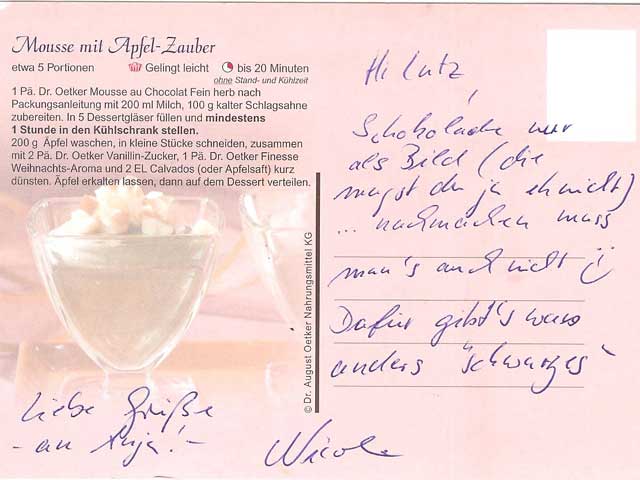 Mousse mit Apfel-Zauber
etwa 5 Portionen Gelingt leicht bis 20 Minuten
ohne Stand- und Kühlzeit
1 Pä. Dr. Oetker Mousse au Chocolat Fein herb nach
Packungsanleitung mit 200 ml Milch, 100 g kalter Schlagsahne
zubereiten. In 5 Dessertgläser füllen und mindestens
1 Stunde in den Kühlschrank stellen.
200 g Äpfel waschen, in kleine Stücke schneiden, zusammen
mit 2 Pä. Dr. Oetker Vanillin-Zucker, 1 Pä. Dr. Oetker Finesse
Weihnachts-Aroma und 2 EL Calvados (oder Apfelsaft) kurz
dünsten. Äpfel erkalten lassen, dann auf dem Dessert verteilen.
© Dr. August Oetker Nahrungsmittel KG
Hi Lutz,
Schokolade nur
als Bild (die
magst du ja eh nicht)
... nachmachen muss
man's auch nicht
Dafür gibt's was
anders "schwarzes"
Liebe Grüße
- an Anja! -
Nicole